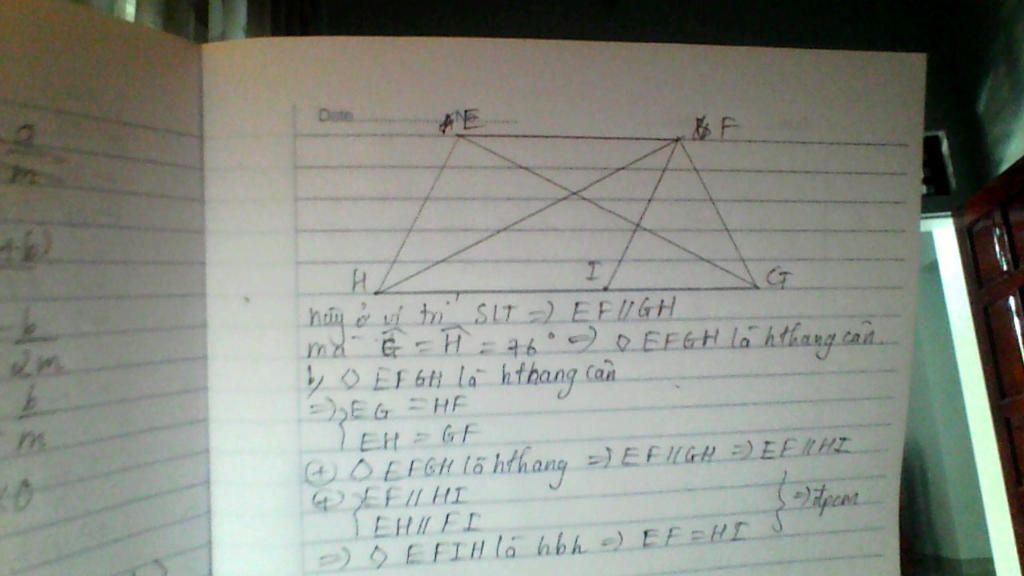 a
m
+b)
b
2m
b
m
<0
Date
E
F
H
I
G
này ở vị trí SLT => EF//GH
mà Ĝ = Ĥ = 76° => ◊ EFGH là hthang cân.
b, ◊ EFGH là hthang cân
=> { EG = HF
EH = GF
(+) ◊ EFGH là hthang => EF//GH => EF//HI
(+) { EF // HI
EH // FI
} => đpcm
=> ◊ EFIH là hbh => EF = HI